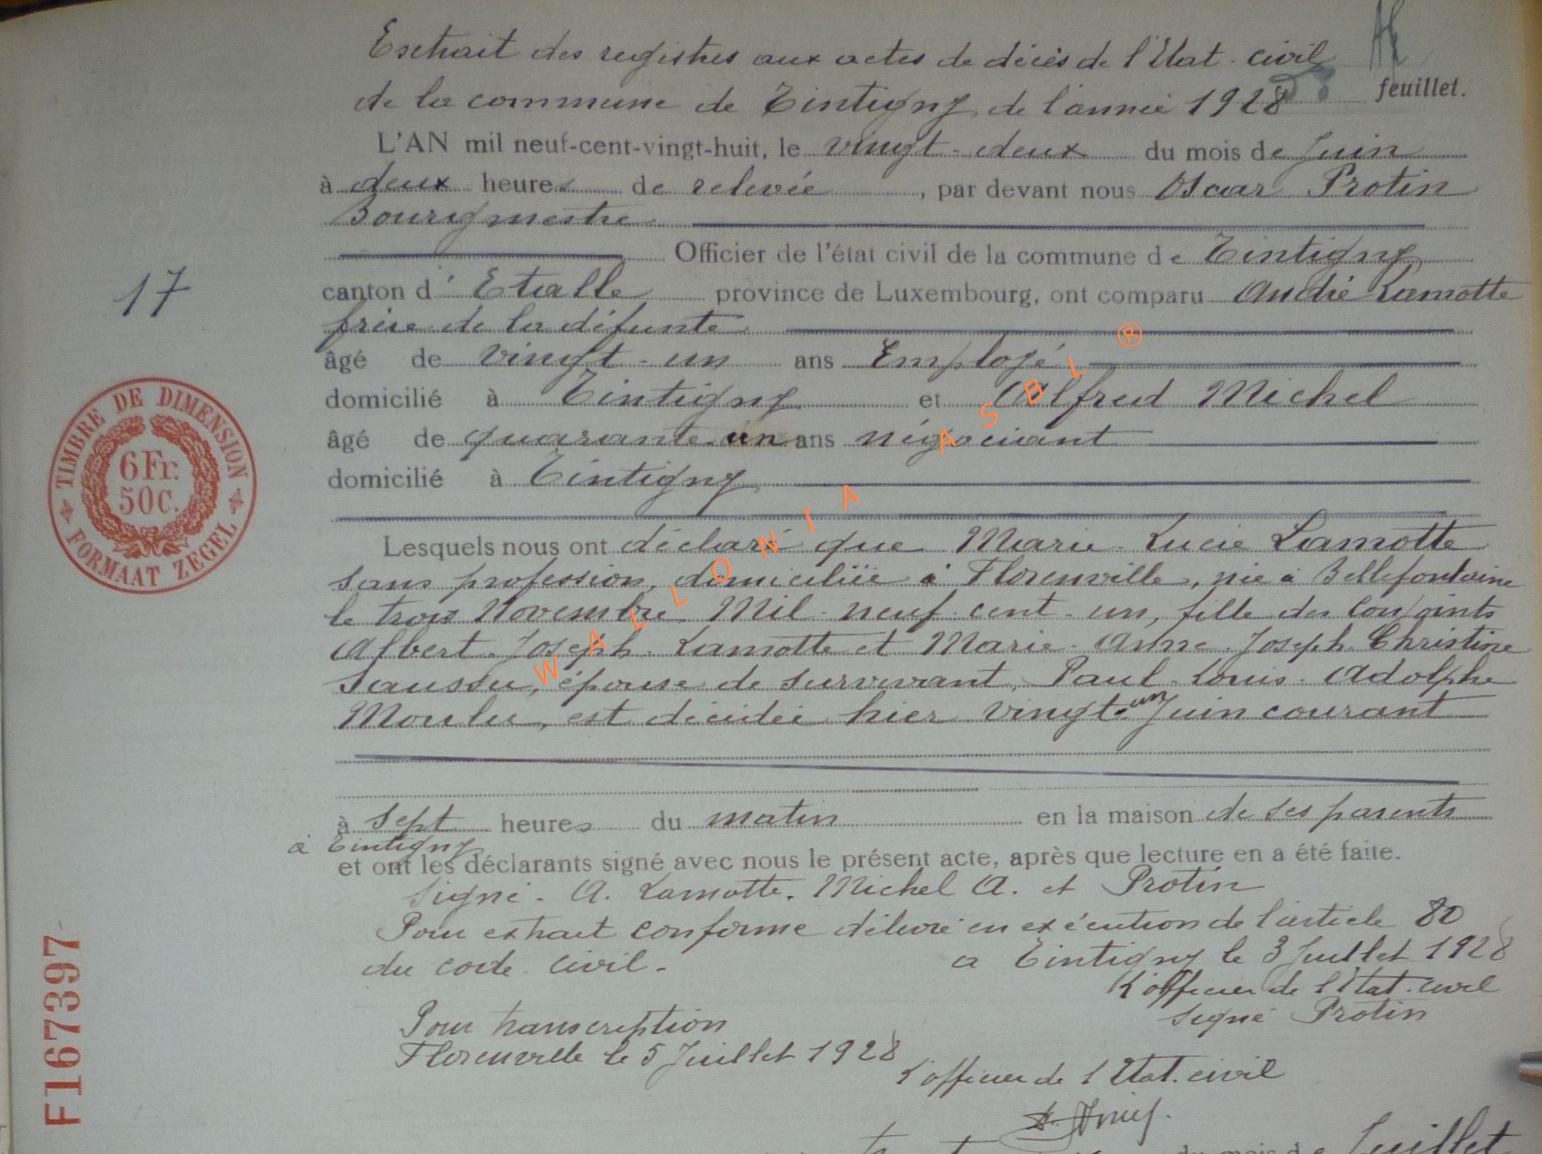 Extrait des registres aux actes de décès de l'Etat-civil
de la commune de Tintigny de l'année 1928 feuillet.
L'AN mil neuf-cent-vingt-huit, le vingt-deux du mois de Juin
à deux heures de relevée, par devant nous Oscar Protin
Bourgmestre
Officier de l'état civil de la commune de Tintigny
17
canton d'Etalle province de Luxembourg, ont comparu André Lamotte
frère de la défunte
âgé de vingt-un ans Employé
domicilié à Tintigny et Alfred Michel
âgé de quarante-un ans négociant
domicilié à Tintigny
TIMBRE DE DIMENSION
6Fr.
50c.
FORMAAT ZEGEL
Lesquels nous ont déclaré que Marie-Lucie Lamotte
sans profession, domiciliée à Florenville, née à Bellefontaine
le trois Novembre Mil-neuf-cent-un, fille des conjoints
Albert-Joseph-Lamotte et Marie-Anne-Joseph-Christine
Saussu, épouse de survivant, Paul-Louis-Adolphe
Moulu, est décédée hier vingt-un Juin courant
à sept heures du matin en la maison de ses parents
à Tintigny
et ont les déclarants signé avec nous le présent acte, après que lecture en a été faite.
Signé-A. Lamotte. Michel A. et Protin
Pour extrait conforme délivré en exécution de l'article 80
du code civil- a Tintigny le 3 Juillet 1928
L'officier de l'Etat-civil
Signé Protin
Pour transcription
Florenville le 5 Juillet 1928
L'officier de l'Etat-civil
F167397
WALLONIA ASBL ®
du mois de Juillet